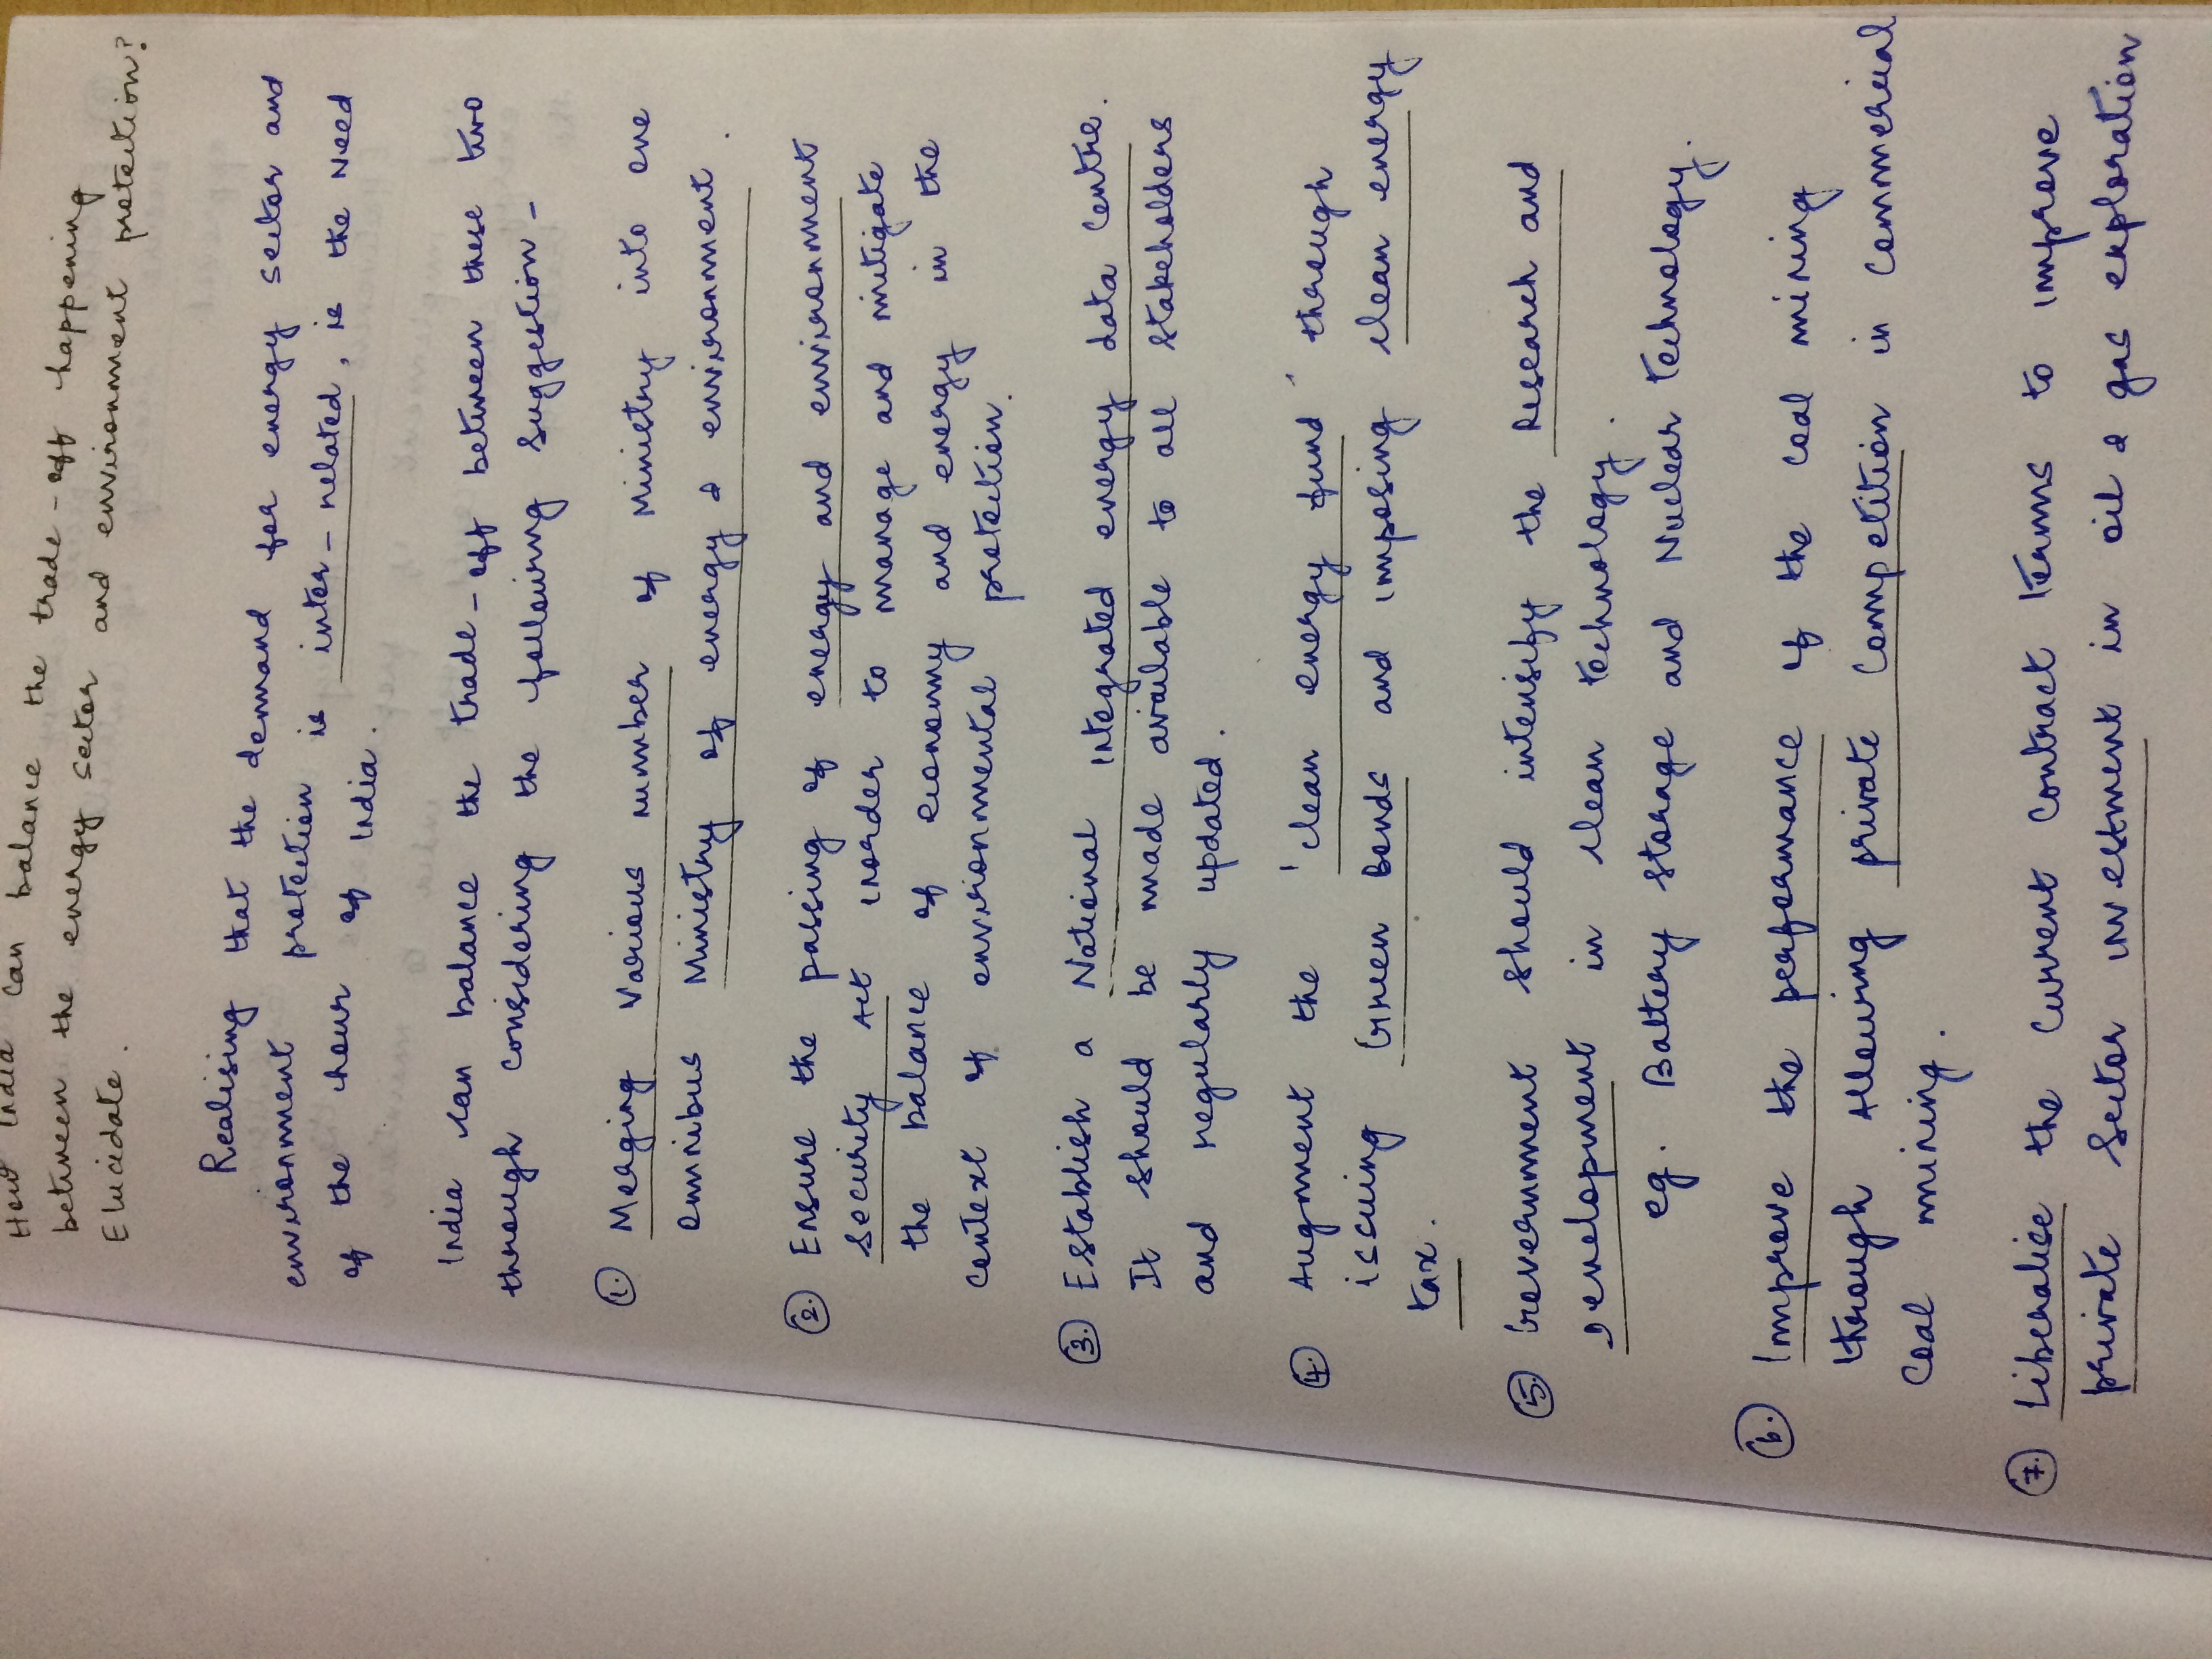 How India can balance the trade-off happening
between the energy sector and environment protection?
Elucidate.
Realising that the demand for energy sector and
environment protection is inter-related, is the Need
of the hour of India.
India can balance the trade-off between these two
through considering the following suggestion -
1. Merging various number of Ministry into one
omnibus Ministry of energy & environment.
2. Ensure the passing of energy and environment
security Act inorder to manage and mitigate
the balance of economy and energy in the
context of environmental protection.
3. Establish a National Integrated energy data centre.
It should be made available to all stakeholders
and regularly updated.
4. Augment the 'clean energy fund' through
issuing Green Bonds and imposing clean energy
tax.
5 Government should intensify the Research and
Development in clean technology.
eg. Battery storage and Nuclear technology.
6. Improve the performance of the coal mining
through Allowing private Competition in Commercial
Coal mining.
7. Liberalise the current contract terms to improve
private sector investment in oil & gas exploration